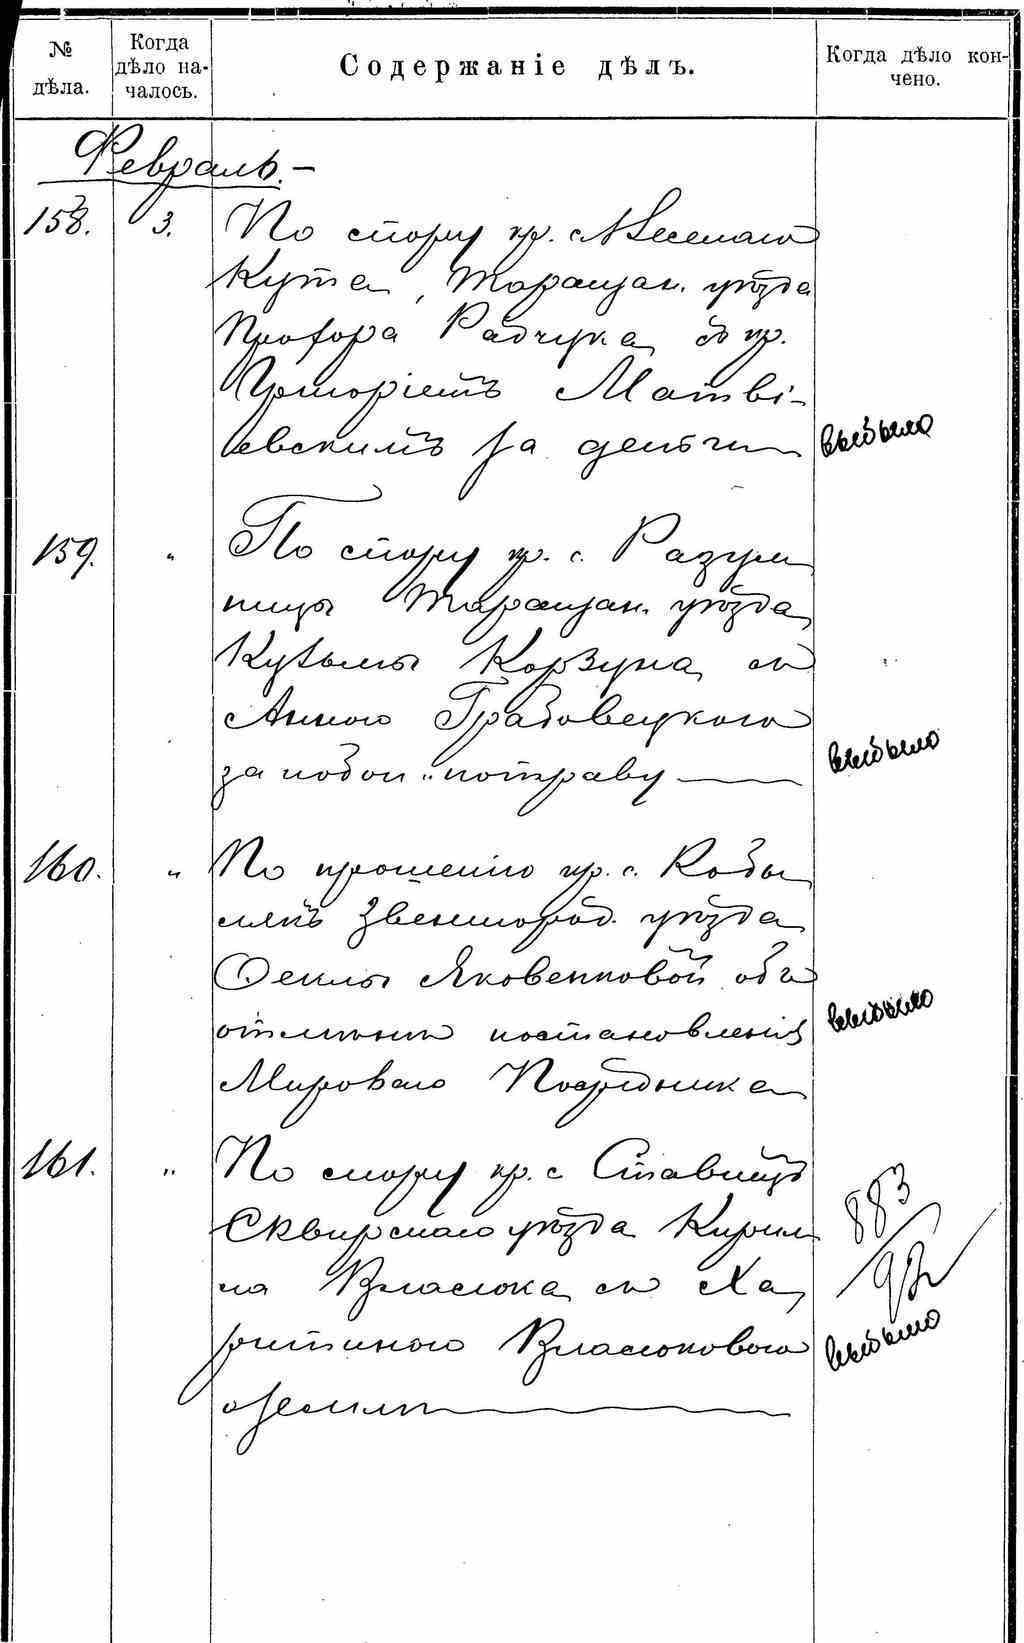 № дѣла.
Когда дѣло на-
чалось.
Содержаніе дѣлъ.
Когда дѣло кон-
чено.
Февраль.-
158. 3. По спору кр. с. Веселаго
Кута, Таращан. уѣзда
Прохора Радчука съ кр.
Григоріемъ Матві-
евскимъ за деньги
выбыло
159. " По спору кр. с. Разум
ницы Таращан. уѣзда
Кузьмы Корзуна съ
Анною Грабовецкою
за побои и потраву
выбыло
160. " По прошенію кр. с. Кобы
лякъ Звенигород. уѣзда
Феклы Яковенковой объ
отмѣнѣ постановленія
Мироваго Посредника
выбыло
161. " По спору кр. с. Ставищъ
Сквирскаго уѣзда Кирил
ла Власюка съ Ха
ритиною Власюковою
о землѣ
883
выбыло